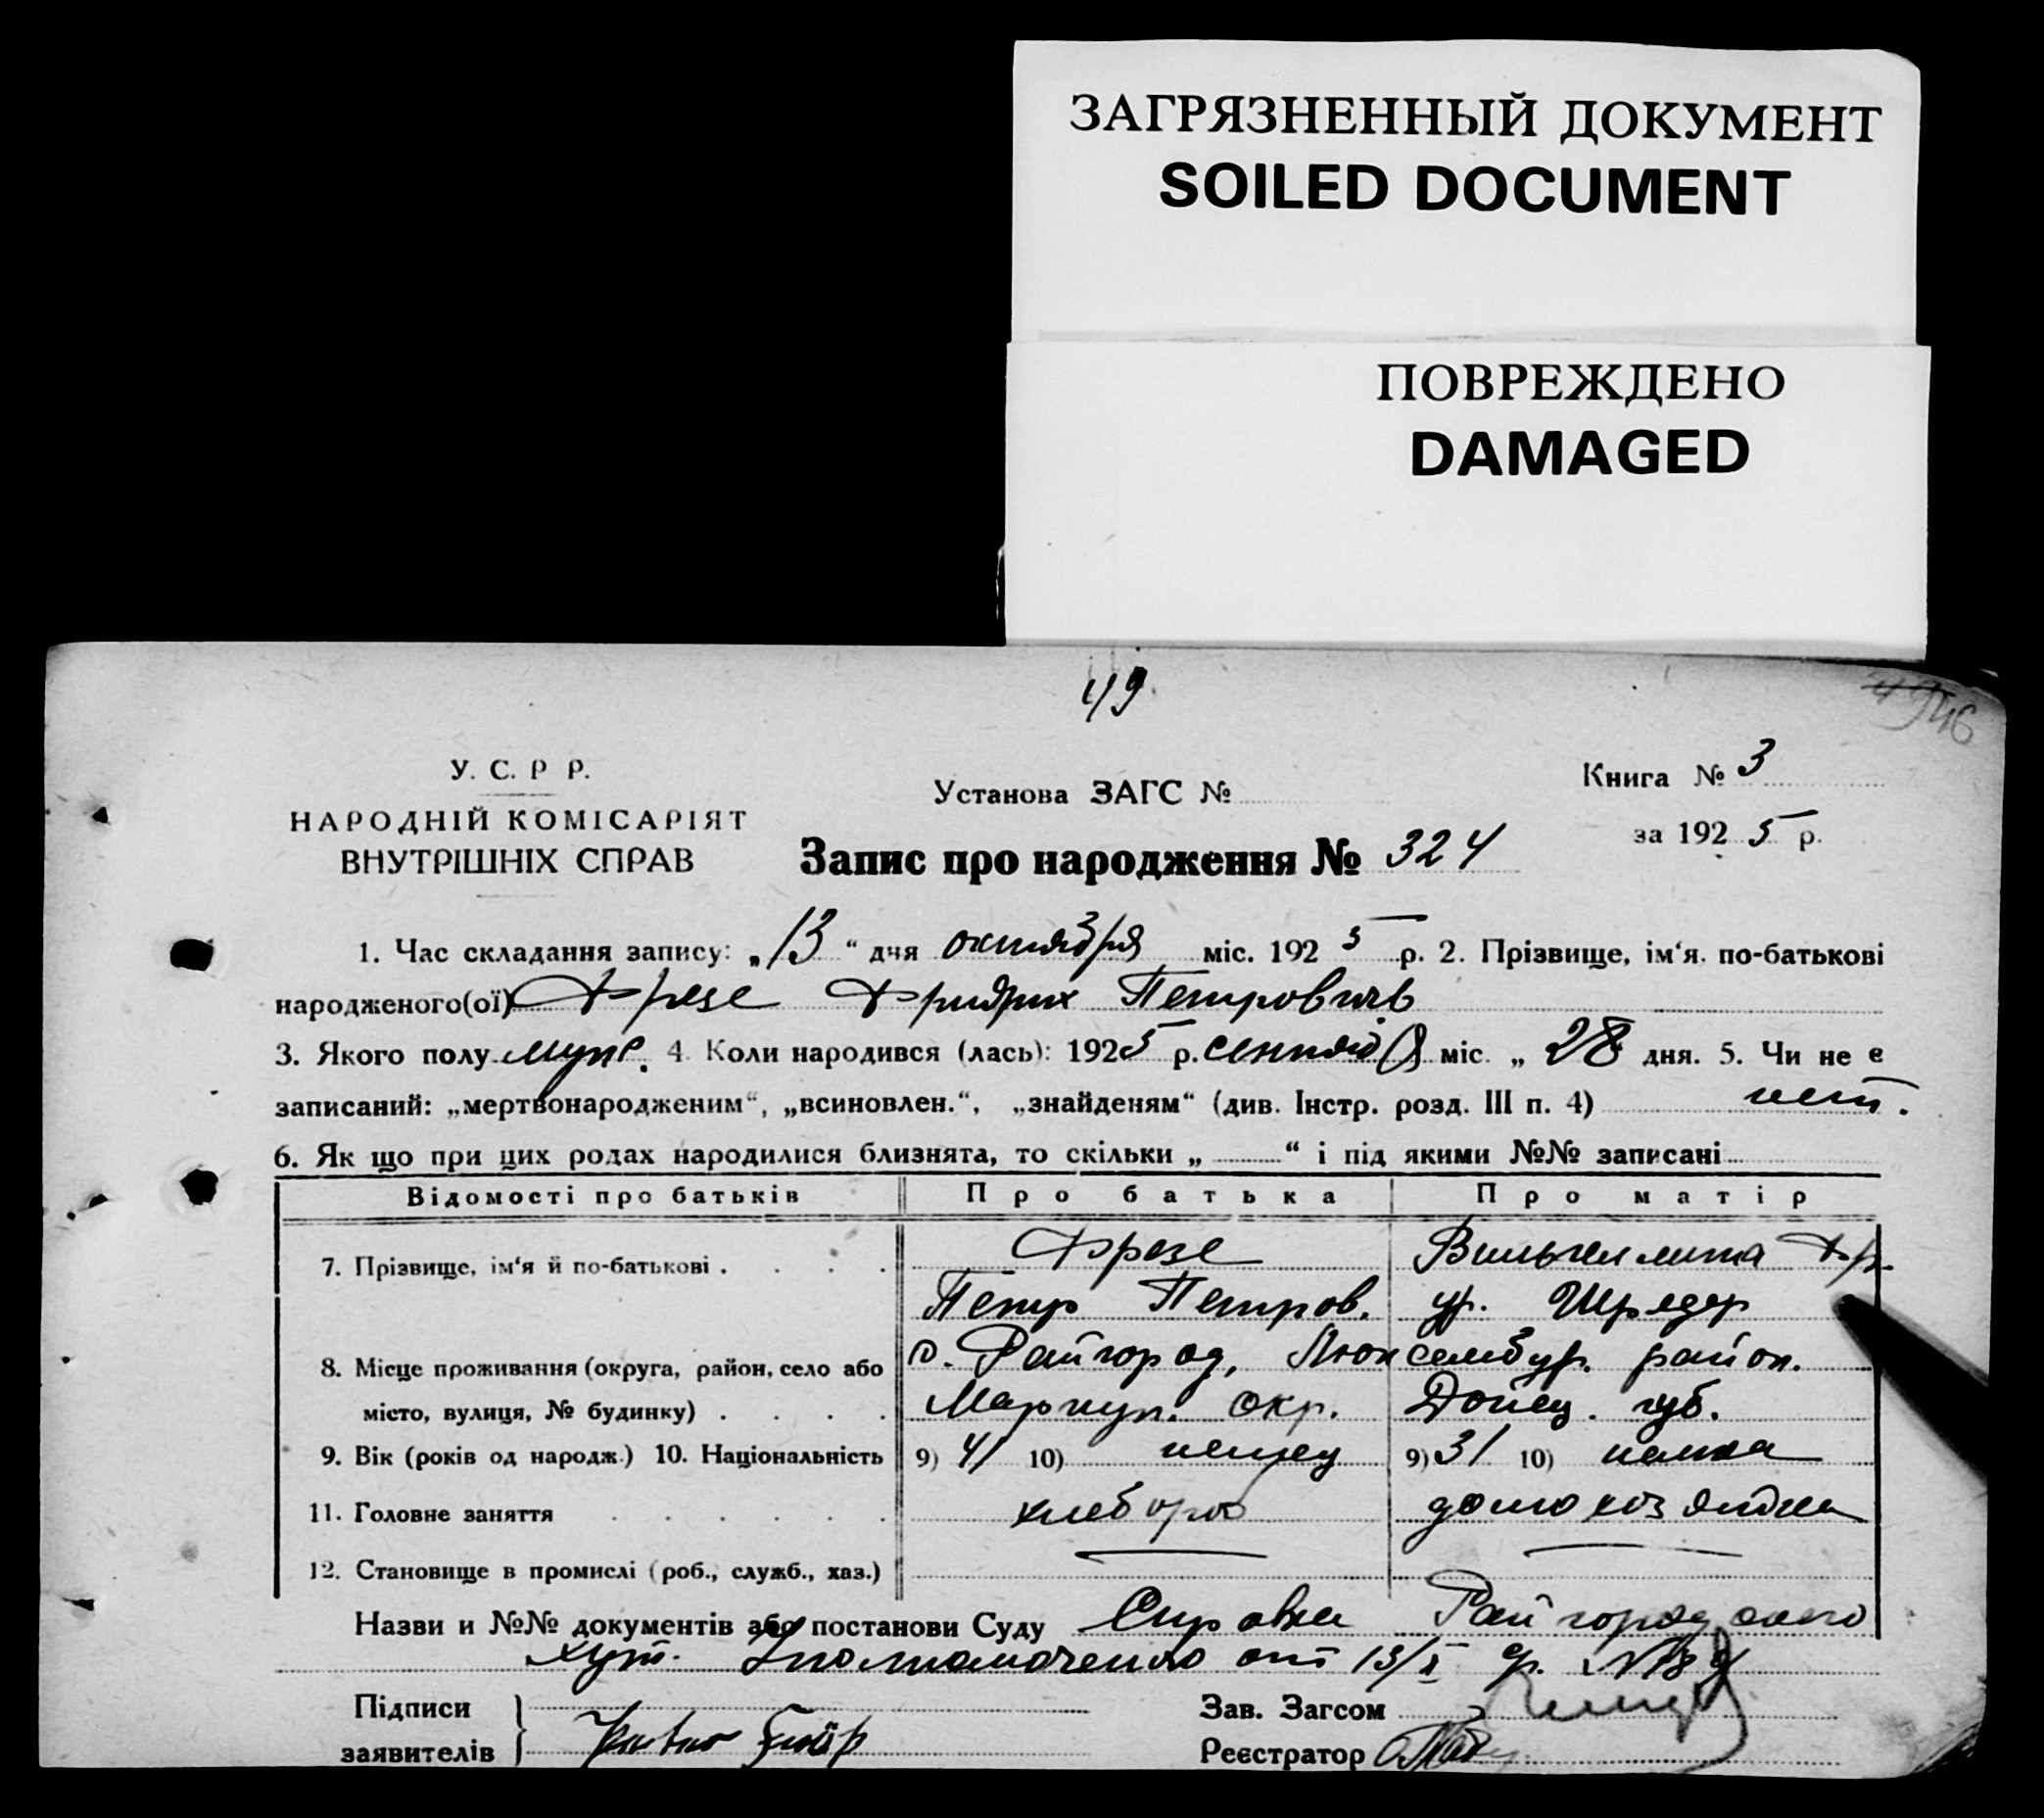 ЗАГРЯЗНЕННЫЙ ДОКУМЕНТ
SOILED DOCUMENT
ПОВРЕЖДЕНО
DAMAGED
49
46
У. С. Р Р.
НАРОДНІЙ КОМІСАРІЯТ
ВНУТРІШНІХ СПРАВ
Установа ЗАГС №
Книга № 3
за 1925 р.
Запис про народження № 324
1. Час складання запису: „13“ дня октября міс. 1925 р. 2. Прізвище, ім‘я. по-батькові
народженого(ої) Фрезе Фридрих Петровичь
3. Якого полу муж. 4. Коли народився (лась): 1925 р. сентяб​ря міс. „28 дня. 5. Чи не є
записаний: „мертвонародженим“, „всиновлен.“, „знайденям“ (див. Інстр. розд. III п. 4) нет.
6. Як що при цих родах народилися близнята, то скільки „ “ і під якими №№ записані
Відомості про батьків Про батька Про матір
7. Прізвище, ім‘я й по-батькові . . . . Фрезе Вильгелмина Фр.
Петр Петров. ур. Шредер
8. Місце проживання (округа, район, село або х. Райгород, Люксембур. район.
місто, вулиця, № будинку) . . . . Мариуп. окр. Донец. губ.
9. Вік (років од народж.) 10. Національність 9) 41 10) немец 9) 31 10) немка
11. Головне заняття . . . . . . хлебороб домохозяйка
12. Становище в промислі (роб., служб., хаз.)
Назви и №№ документів або постанови Суду Справка Райгородского
хут. Уполномоченого от 13/X
Підписи
заявителів
Зав. Загсом
Реєстратор